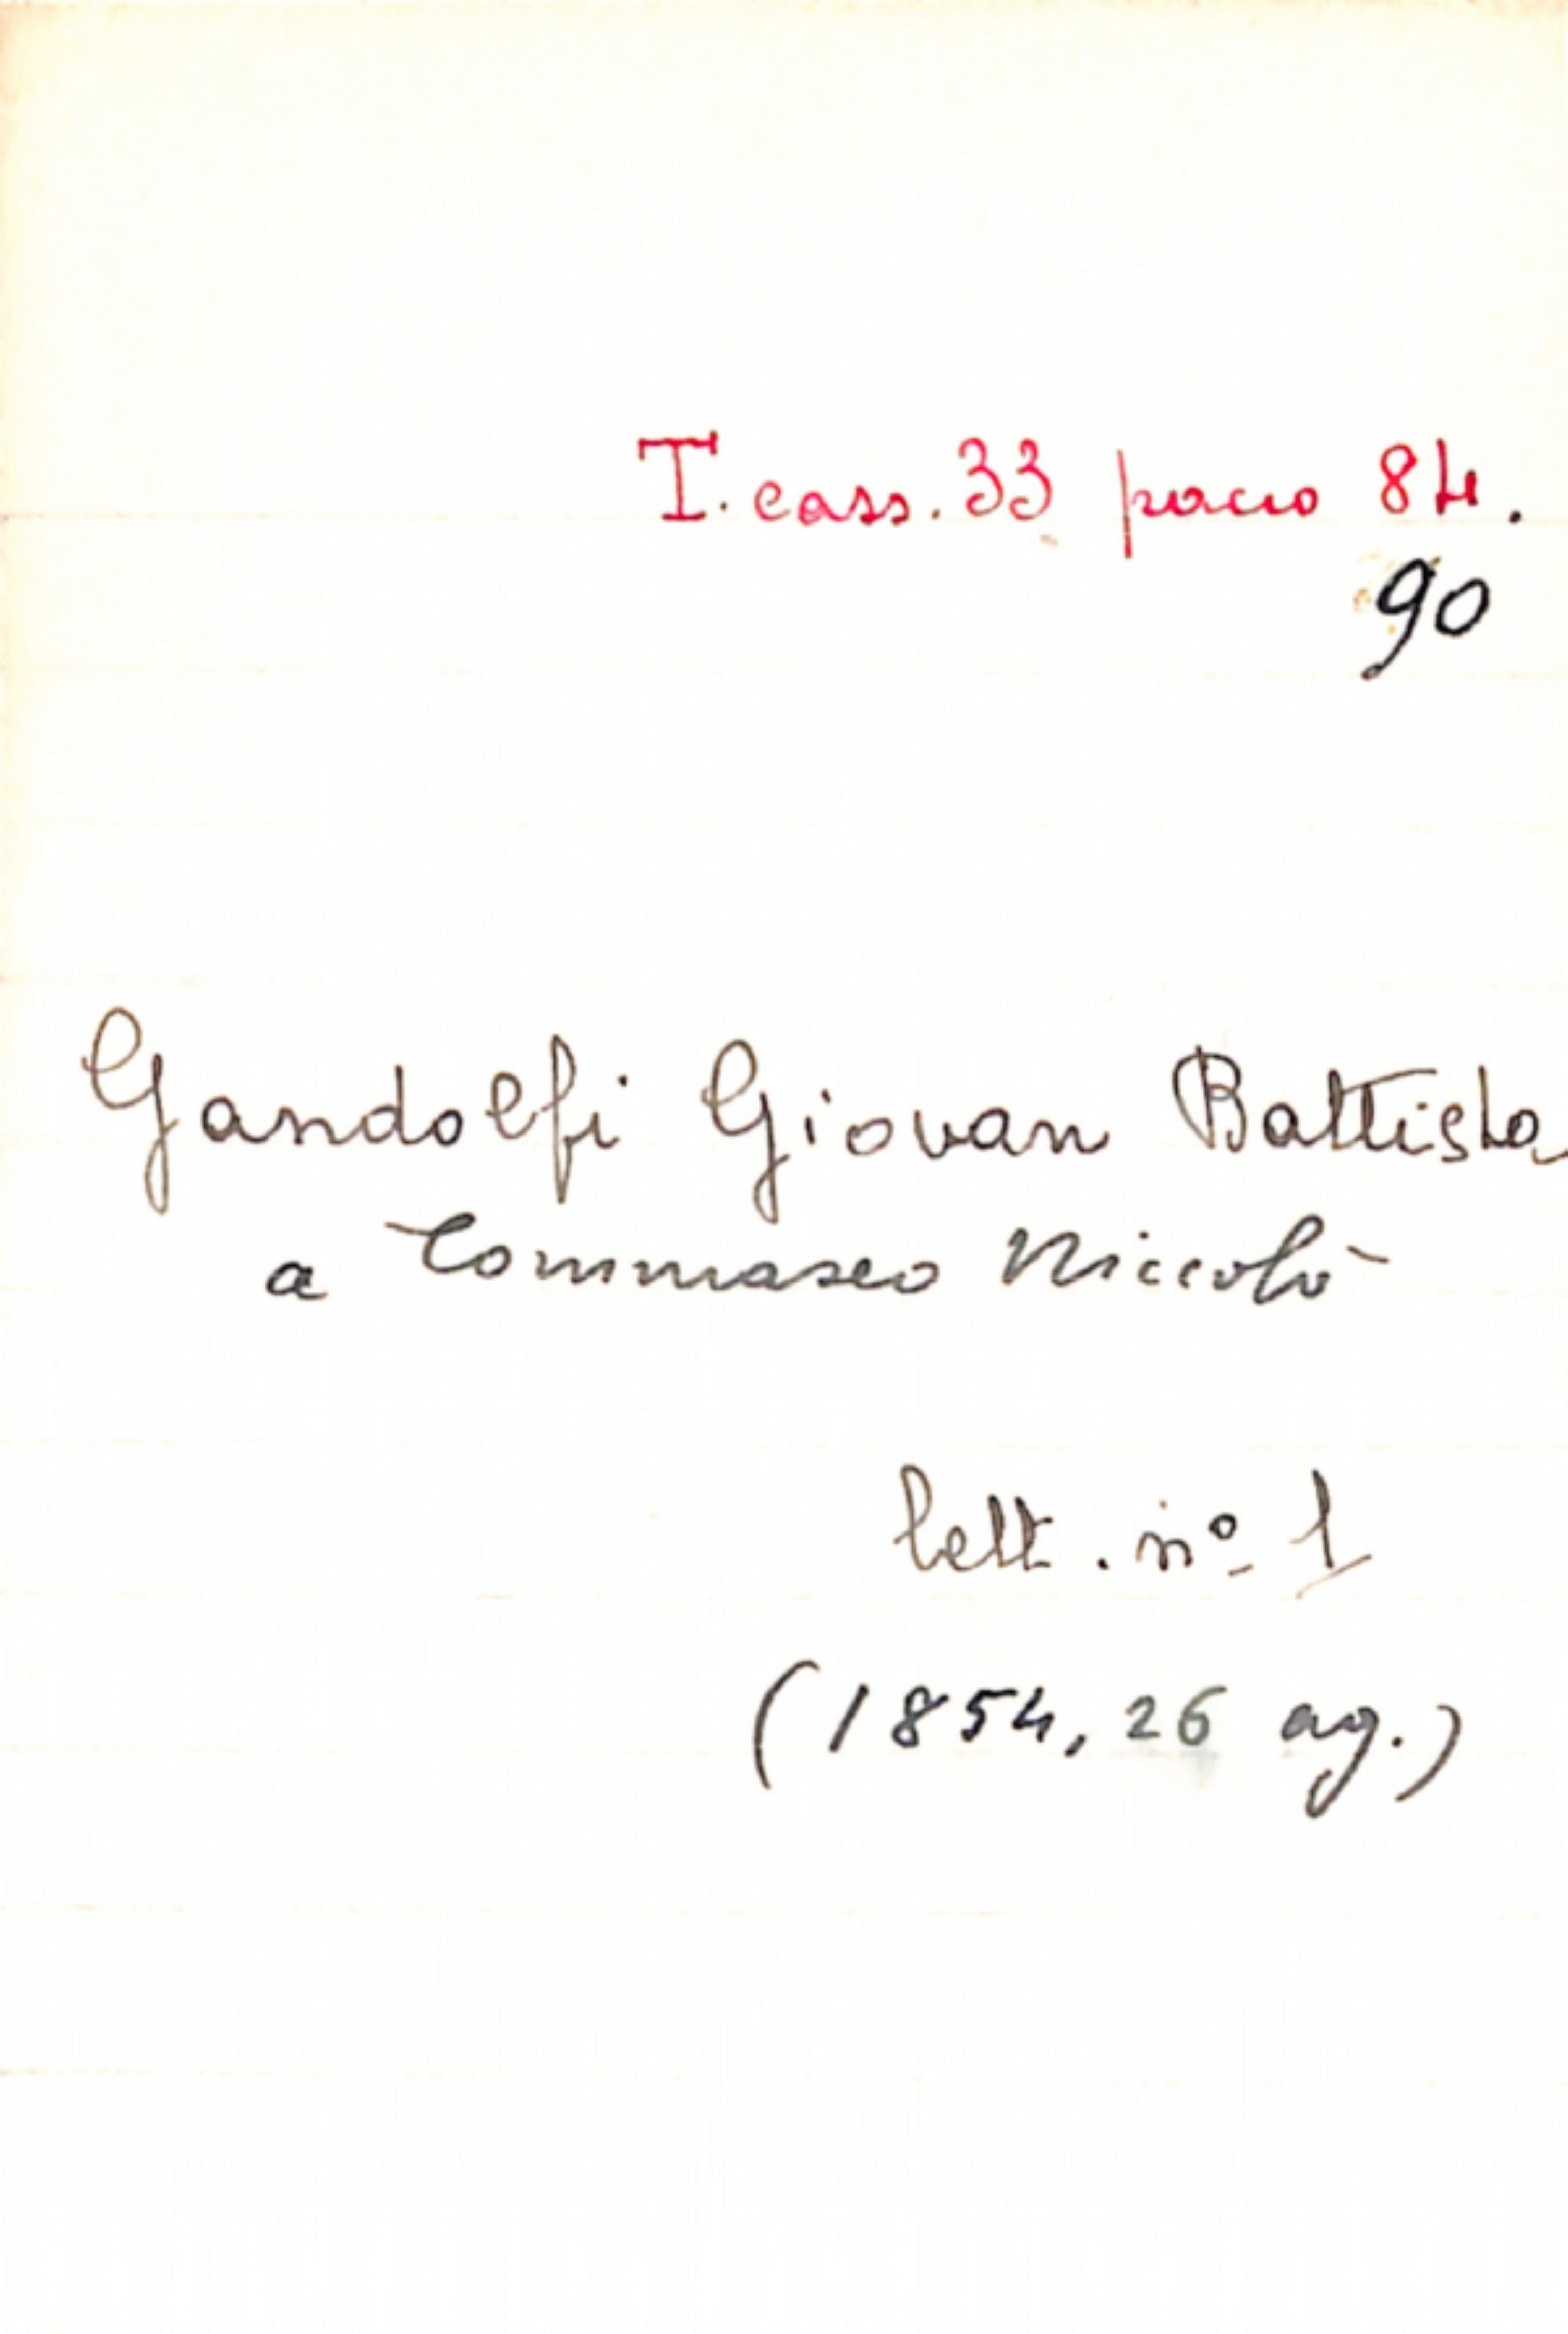 T. cass. 33 pacco 84.
90
Gandolfi Giovan Battista
a Tommaseo Niccolò
lett. nº 1
(1854, 26 ag.)